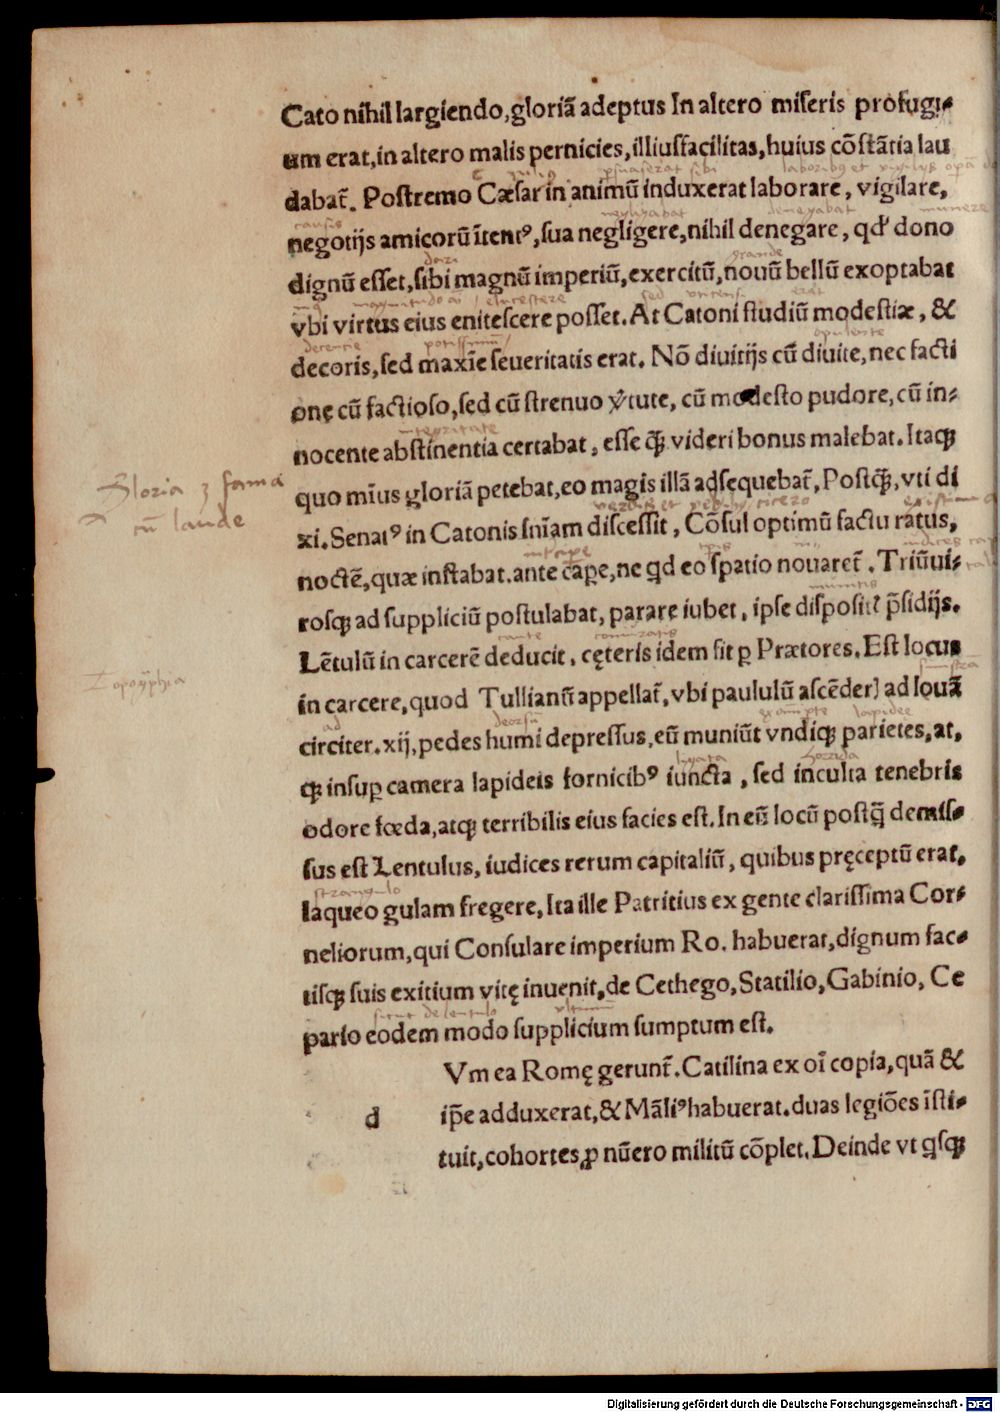 Cato nihil largiendo,gloriā adeptus In altero miseris profugi⸗
um erat,in altero malis pernicies,illiusfacilitas,huius cōstātia lau
persuaserat sibi
dabat̃. Postremo Cæsar in animū induxerat laborare, vigilare,
neglygabat denegabat munere
negotijs amicorū ītentꝰ,sua negligere,nihil denegare, qd' dono
dari grande
dignū esset,sibi magnū imperiū,exercitū,nouū bellū exoptabat
elucescere sed erat
vbi virtus eius enitescere posset. At Catoni studiū modestiæ, &
potissimum opulente
decoris,sed maxīe seueritatis erat. Nō diuitijs cū diuite,nec facti
one cū factioso,sed cū strenuo v̓tute, cū modesto pudore,cū in⸗
integritate
nocente abstinentia certabat, esse q̃ꝫ videri bonus malebat. Itaqꝫ
Gloria ⁊ fama
cū laude
quo mīus gloriā petebat,eo magis illā adsequebat̃, Postq̃ꝫ, vti di
xi. Senatꝰ in Catonis sn̄iam discessit, Cōsul optimū factu ratus,
noctē,quæ instabat.ante cāpe,ne qd eo spatio nouaret̃. Triūui⸗
rosqꝫ ad suppliciū postulabat, parare iubet, ipse dispositꝭ p̄sidijs.
Lētulū in carcerē deducit, cęteris idem fit ꝑ Prætores. Est locus
Topogrphia
in carcere,quod Tullianū appellat̃, vbi paululū ascēderꝭ ad louā
ad deorsū lapidee
circiter.xij,pedes humi depressus,eū muniūt vndiqꝫ parietes,at,
ligata horrida
qꝫ insuꝑ camera lapideis fornicibꝰ iuncta, sed inculta tenebris
odore fœda,atqꝫ terribilis eius facies est. In eū locū postq̄ꝫ demis⸗
sus est Lentulus, iudices rerum capitaliū, quibus pręceptū erat,
strangulo
laqueo gulam fregere, Ita ille Patritius ex gente clarissima Cor⸗
neliorum,qui Consulare imperium Ro. habuerat,dignum fac⸗
tisqꝫ suis exitium vitę inuenit,de Cethego,Statilio,Gabinio, Ce
sicut de lentulo ultimum
pario eodem modo supplicium sumptum est.
Vm ea Romę gerunt̃. Catilina ex oī copia,quā &
d ip̄e adduxerat,& Māliꝰhabuerat.duas legiōes īsti⸗
tuit,cohortes,ꝓ nūero militū cōplet. Deinde vt qsqꝫ
Digitalisierung gefördert durch die Deutsche Forschungsgemeinschaft - DFG